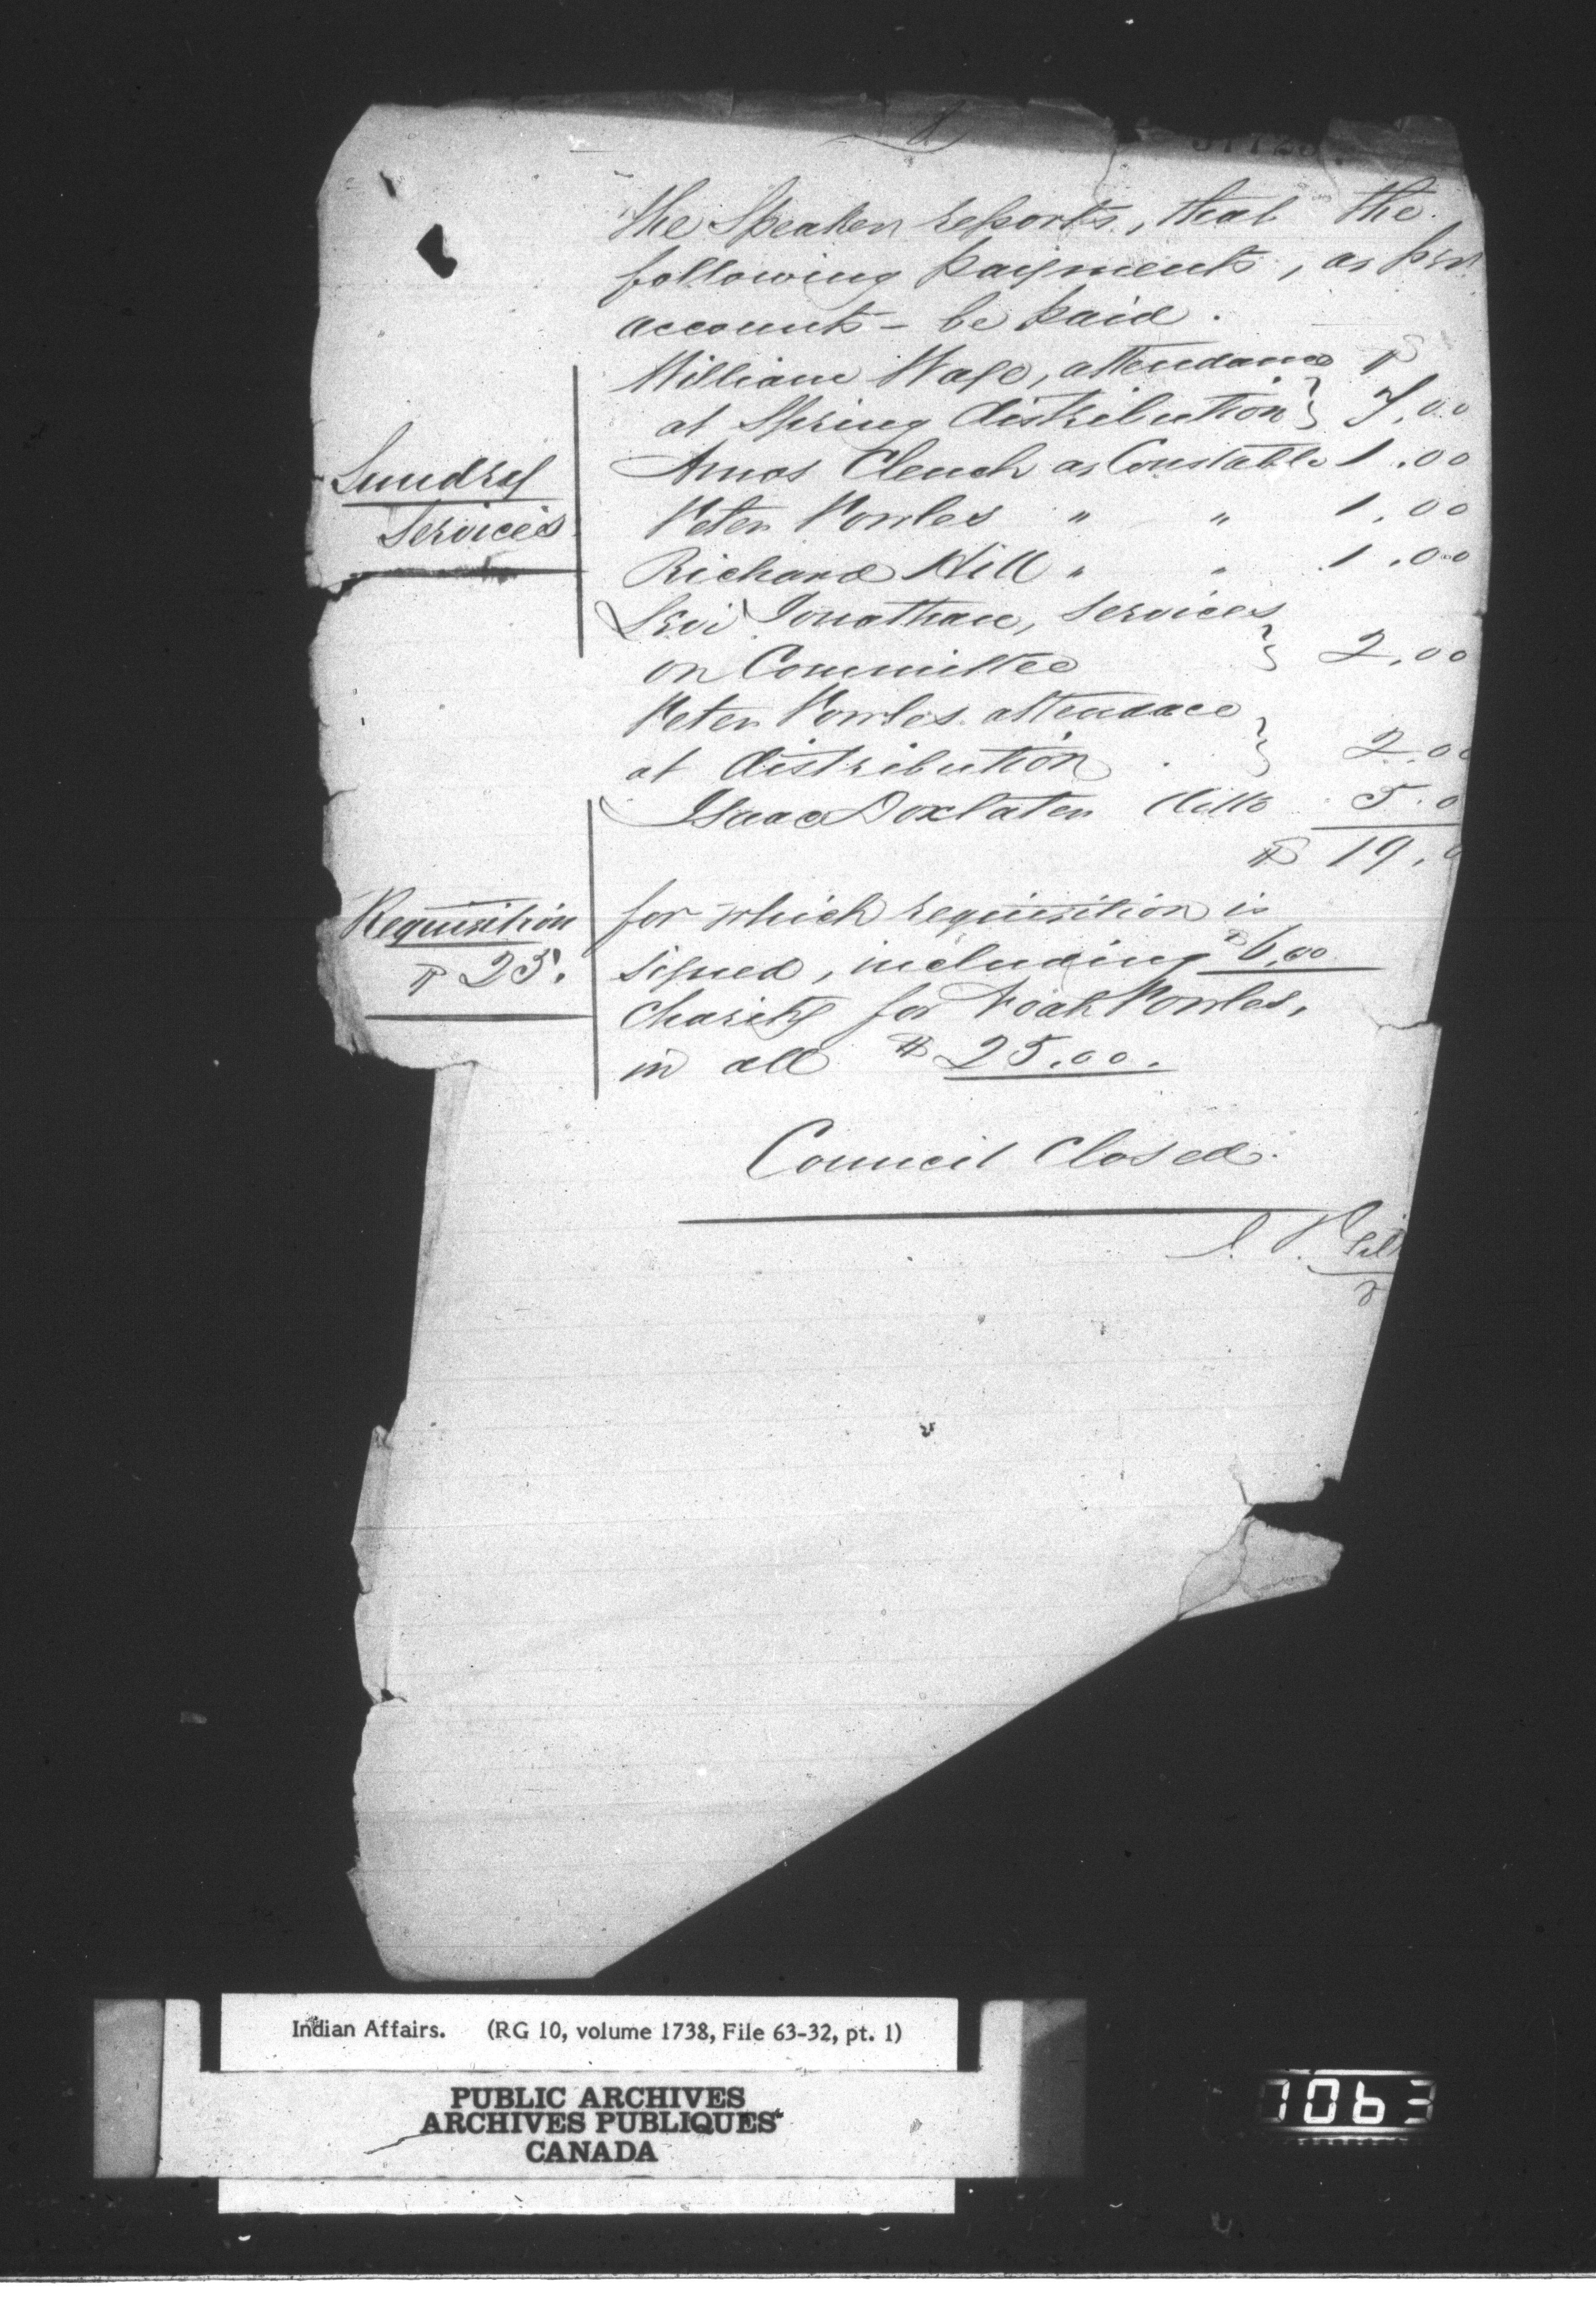 The Speaker reports, that the
following payments, as per
accounts - be paid.
William Wage, attendance $
at Spring distribution } 7.00
Sundry
Services
Amos Clench as Constable 1.00
Peter Powles " " 1.00
Richard Hill " " 1.00
Levi Jonathan, services
on Committee } 2.00
Peter Powles attendace
at distribution } 2.00
Isaac Doxtater ditto 5.0
$ 19.0
Requisition
$ 25.
for which requisition is
signed, including $6.00
charity for Noah Powles,
in all $ 25.00.
Council Closed.
Indian Affairs. (RG 10, volume 1738, File 63-32, pt. 1)
PUBLIC ARCHIVES
ARCHIVES PUBLIQUES
CANADA
1063